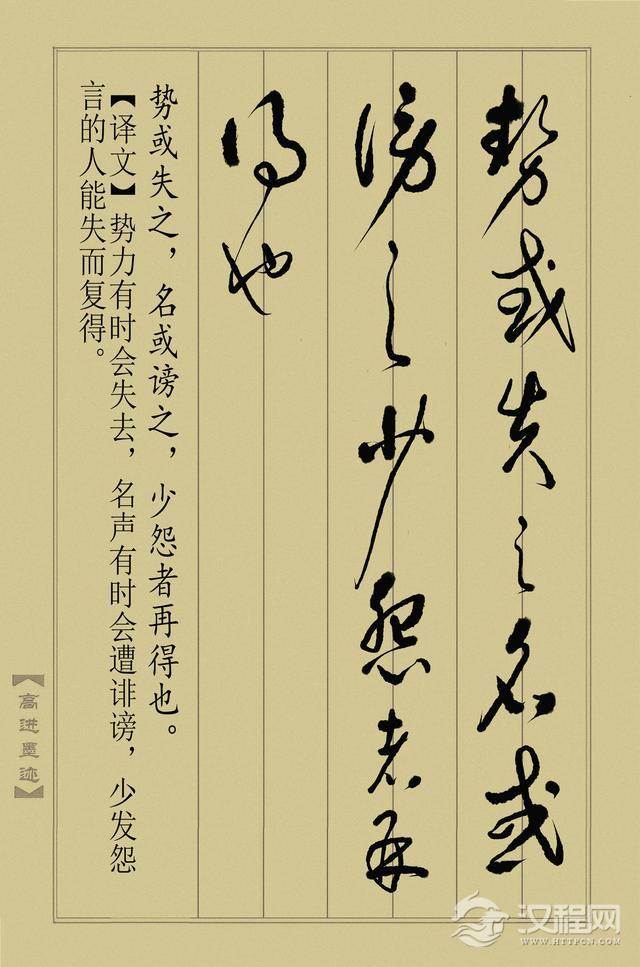 势或失之名或
谤之少怨者再
得也
势或失之，名或谤之，少怨者再得也。
【译文】势力有时会失去，名声有时会遭诽谤，少发怨
言的人能失而复得。
【高进墨迹】
汉程网
WWW.HTTPCN.COM